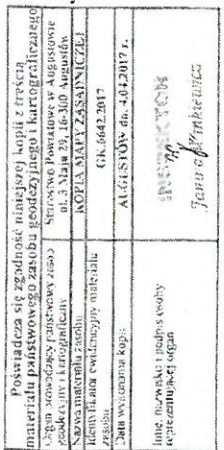 Poświadcza się zgodność niniejszej kopii z treścią
materiału państwowego zasobu geodezyjnego i kartograficznego
Organ prowadzący państwowy zasób
geodezyjny i kartograficzny
Starostwo Powiatowe w Augustowie
ul. 3 Maja 29, 16-300 Augustów
Nazwa materiału zasobu
KOPIA MAPY ZASADNICZEJ
Identyfikator ewidencyjny materiału
zasobu
GK.6642.2017
Data wykonania kopii
AUGUSTÓW dn. 4.04.2017 r.
Imię, nazwisko i podpis osoby
reprezentującej organ
INSPEKTOR